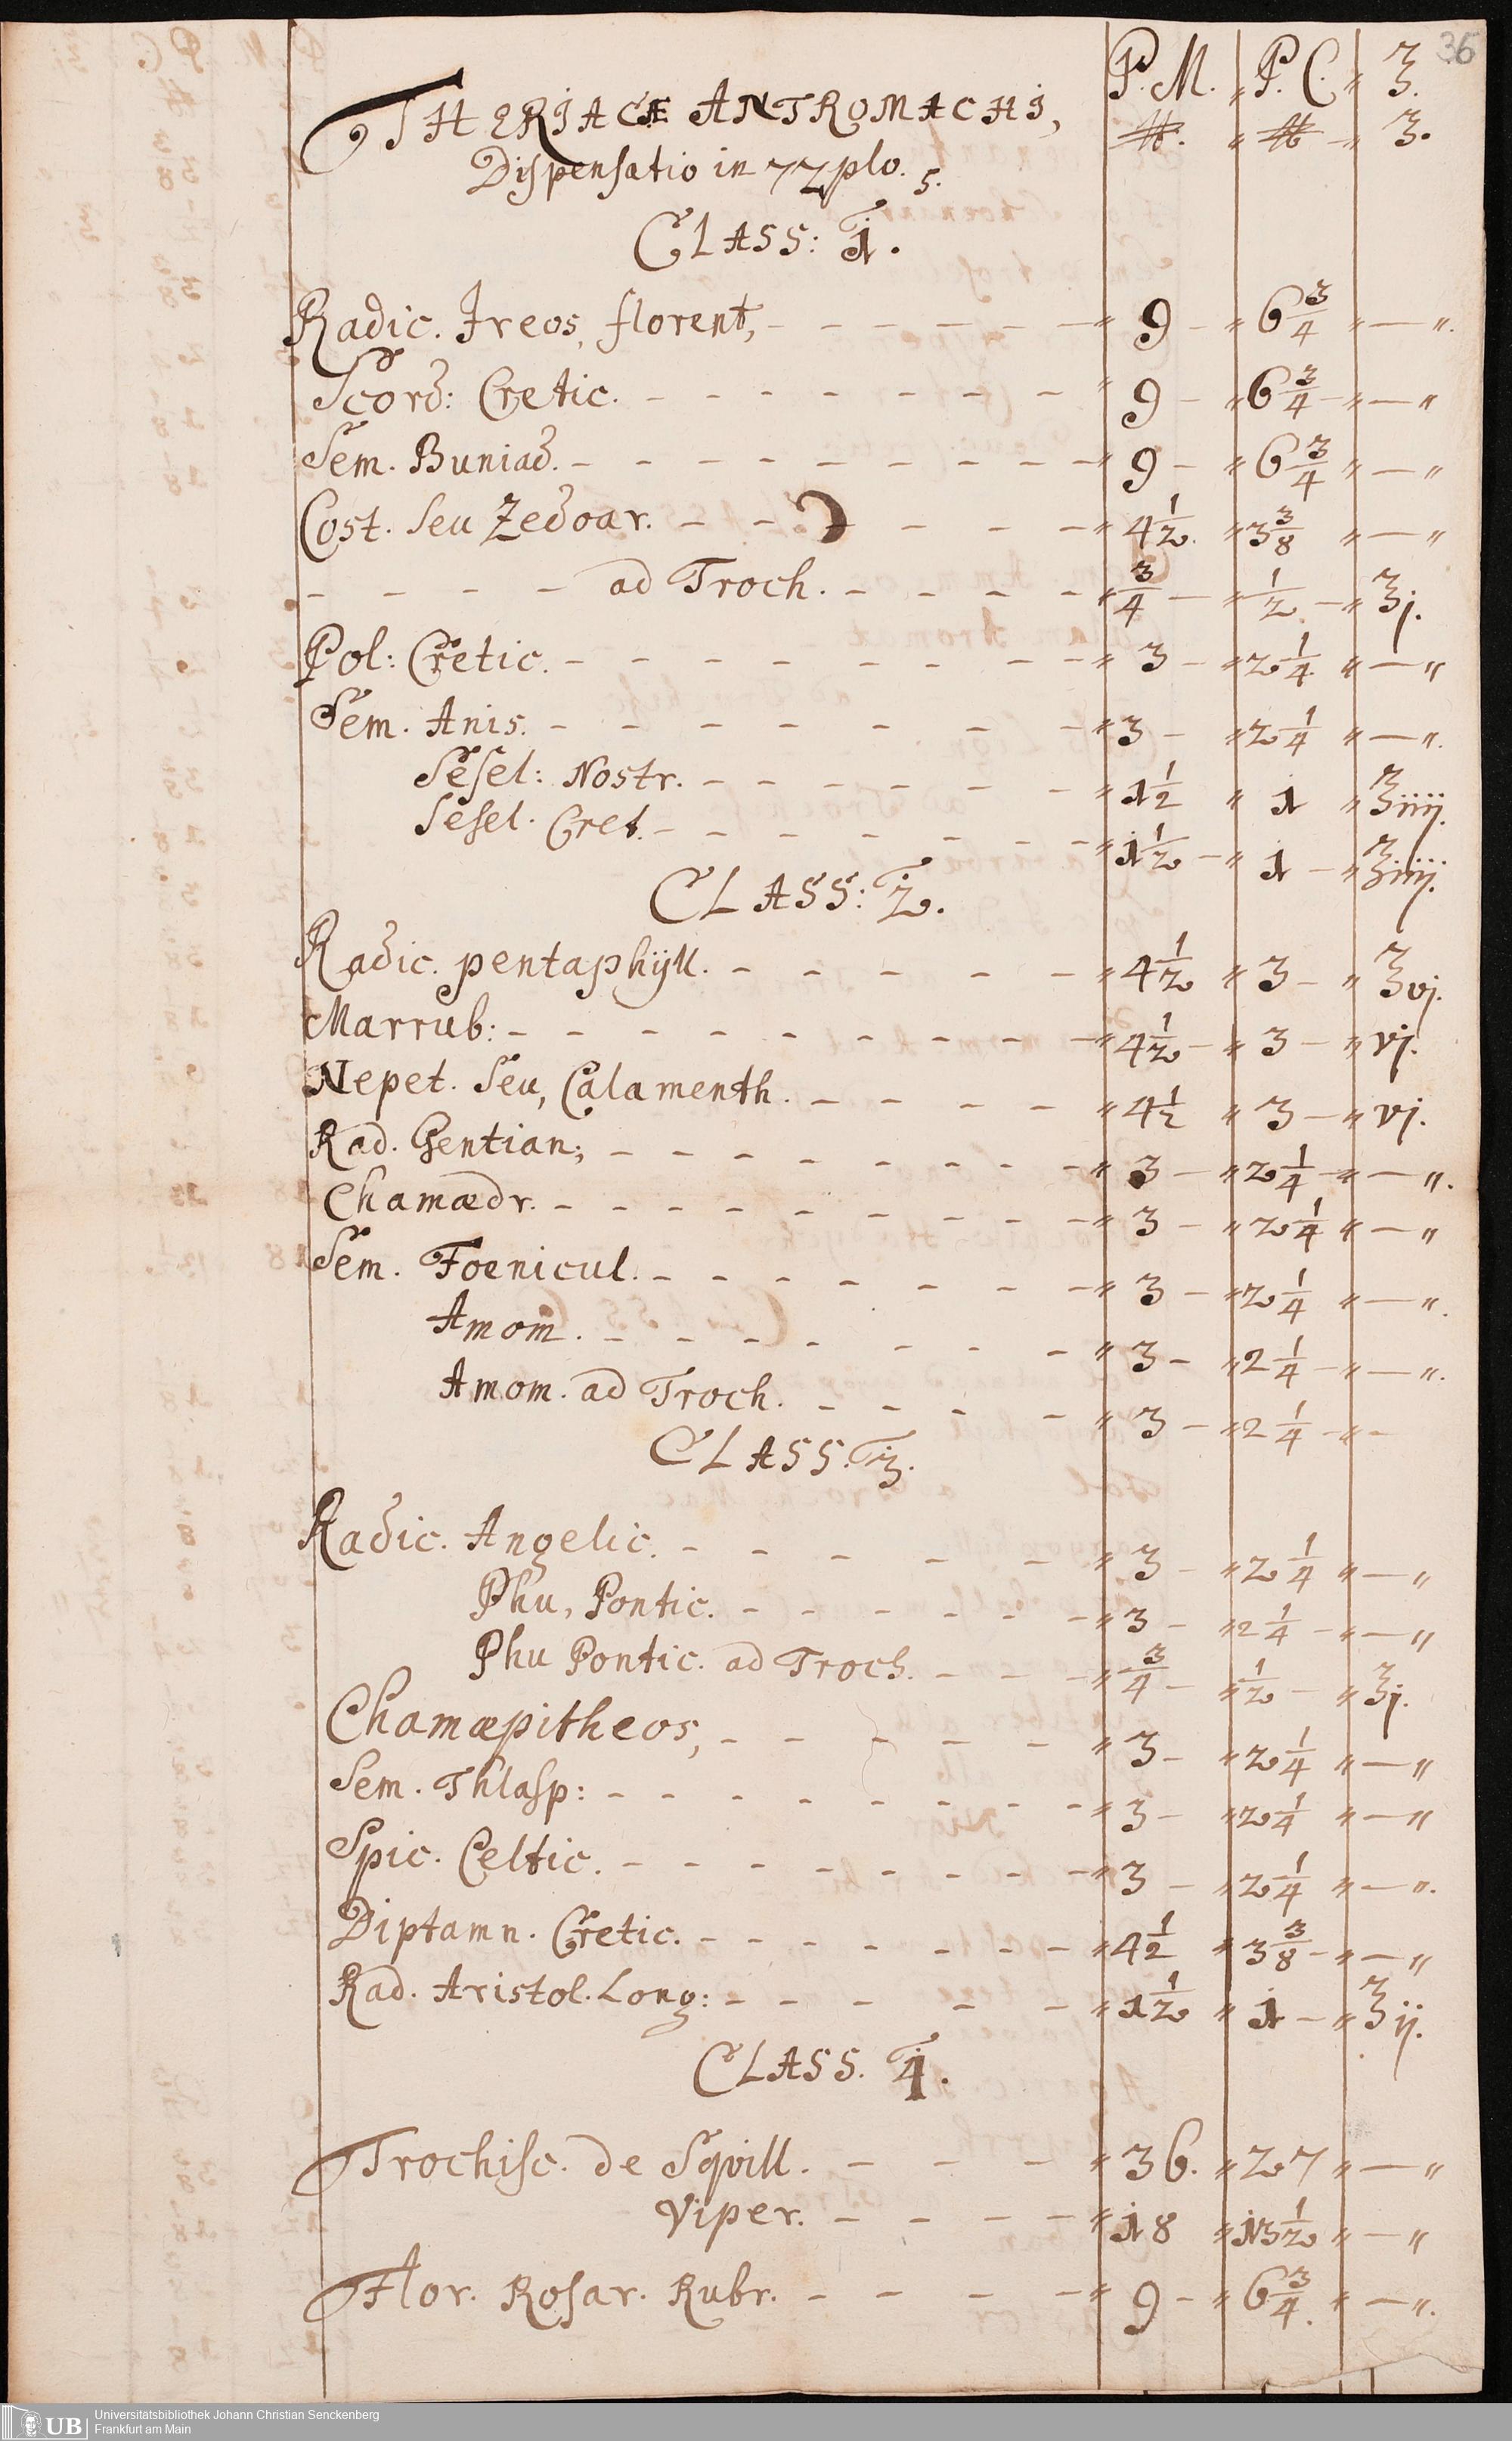 36
P. M. „ P. C. „ ℥.
℔. „ ℔ – „ ℥.
THERIACÆ ANTROMACHI,
Dispensatio in 72plo. s.
CLASS: 1.
Radic. Ireos, florent, - - - - - - „ 9 - „ 6 3/4 „ — „.
Scord: Cretic. - - - - - - - „ 9 - „ 6 3/4 - „ — „
Sem. Buniad. - - - - - - - - - „ 9 - „ 6 3/4 „ — „
Cost. seu Zedoar. - - - - - - „ 4 1/2. „ 3 3/8 „ — „
- - - - ad Troch. - - - - „ 3/4 — „ 1/2. - „ ℥j.
Pol: Cretic. - - - - - - - - - „ 3 - „ 2 1/4 „ — „
Sem. Anis. - - - - - - - - „ 3 - „ 2 1/4 „ — „.
Sesel: Nostr. - - - - - - „ 1 1/2 „ 1 „ ℥iiij.
Sesel. Cret. - - - - - - - - „ 1 1/2 - „ 1 - „ ℥iiij.
CLASS: 2.
Radic. pentaphÿll. - - - - - „ 4 1/2 „ 3 - „ ℥vj.
Marrub: - - - - - - - - - „ 4 1/2 - „ 3 - „ vj.
Nepet. seu, Calamenth. - - - - „ 4 1/2 „ 3 - „ vj.
Rad. Gentian; - - - - - - - - „ 3 - „ 2 1/4 - „ — „.
Chamædr. - - - - - - - - - „ 3 - „ 2 1/4 „ — „
Sem. Foenicul. - - - - - - - „ 3 - „ 2 1/4 „ — „.
Amom. - - - - - - - „ 3 - „ 2 1/4 - „ — „.
Amom. ad Troch. - - - - „ 3 - „ 2 1/4 - „ -
CLASS. 3.
Radic. Angelic. - - - - - „ 3 - „ 2 1/4 „ — „
Phu, Pontic. - - - - - - „ 3 - „ 2 1/4 - „ — „
Phu Pontic. ad Troch. - - - „ 3/4 - „ 1/2 - „ ℥j.
Chamæpitheos, - - - - - „ 3 - „ 2 1/4 „ — „
Sem. Thlasp: - - - - - - - - „ 3 - „ 2 1/4 „ — „
Spic. Celtic. - - - - - - - - „ 3 - „ 2 1/4 „ — „.
Diptamn. Cretic. - - - - - - - „ 4 1/2 „ 3 3/8 - „ — „
Rad. Aristol. Long: - - - - - „ 1 1/2 „ 1 - „ ℥ij.
CLASS. 4.
Trochisc. de Sqvill. - - - „ 36. „ 27 „ — „
Viper. - - - - „ 18 „ 13 1/2 „ — „
Flor. Rosar. Rubr. - - - - „ 9 - „ 6 3/4. „ — „.
UB
Universitätsbibliothek Johann Christian Senckenberg
Frankfurt am Main